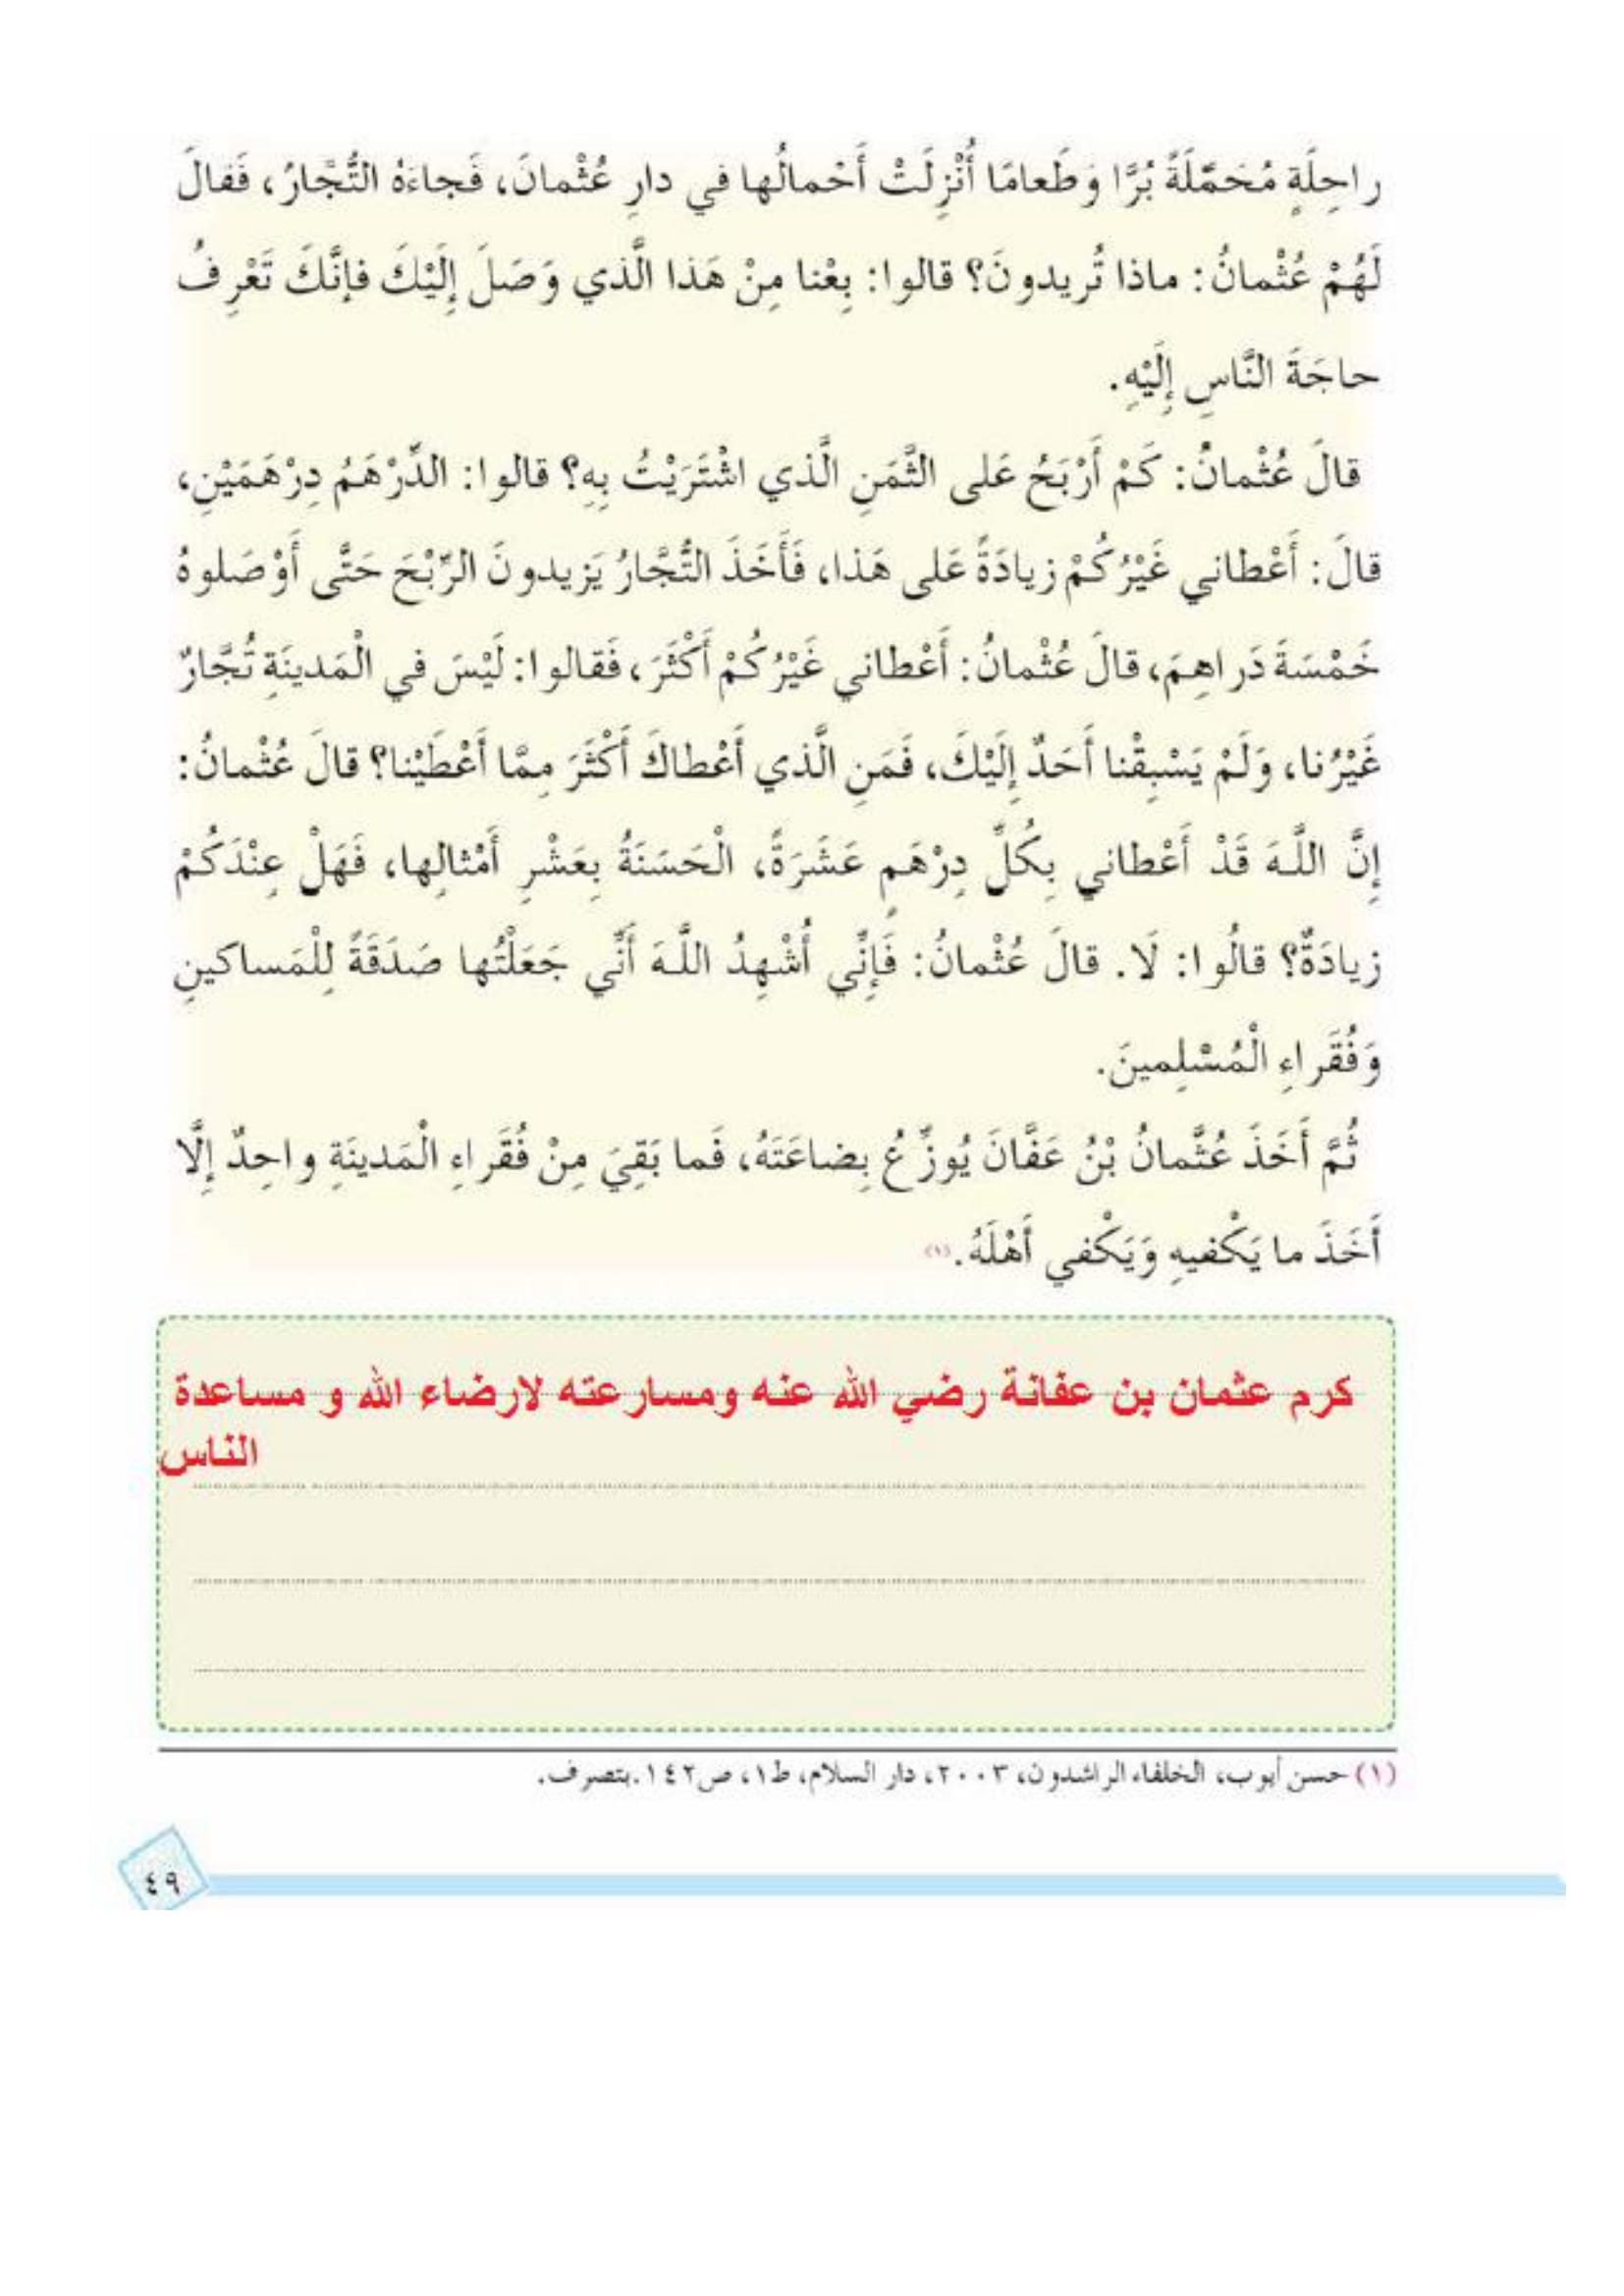 راحِلَةٍ مُحَمَّلَةً بُرًّا وَطَعامًا أُنْزِلَتْ أَحْمالُها في دارِ عُثْمانَ، فَجاءَهُ التُّجَّارُ، فَقالَ
لَهُمْ عُثْمانُ: ماذا تُريدونَ؟ قالوا: بِعْنا مِنْ هَذا الَّذي وَصَلَ إِلَيْكَ فإنَّكَ تَعْرِفُ
حاجَةَ النَّاسِ إِلَيْهِ.
قالَ عُثْمانُ: كَمْ أَرْبَحُ عَلى الثَّمَنِ الَّذي اشْتَرَيْتُ بِهِ؟ قالوا: الدِّرْهَمُ دِرْهَمَيْنِ،
قالَ: أَعْطاني غَيْرُكُمْ زيادَةً عَلى هَذا، فَأَخَذَ التُّجَّارُ يَزيدونَ الرِّبْحَ حَتَّى أَوْصَلوهُ
خَمْسَةَ دَراهِمَ، قالَ عُثْمانُ: أَعْطاني غَيْرُكُمْ أَكْثَرَ، فَقالوا: لَيْسَ في الْمَدينَةِ تُجَّارٌ
غَيْرُنا، وَلَمْ يَسْبِقْنا أَحَدٌ إِلَيْكَ، فَمَنِ الَّذي أَعْطاكَ أَكْثَرَ مِمَّا أَعْطَيْنا؟ قالَ عُثْمانُ:
إِنَّ اللَّهَ قَدْ أَعْطاني بِكُلِّ دِرْهَمٍ عَشَرَةً، الْحَسَنَةُ بِعَشْرِ أَمْثالِها، فَهَلْ عِنْدَكُمْ
زيادَةٌ؟ قالُوا: لَا. قالَ عُثْمانُ: فَإِنِّي أُشْهِدُ اللَّهَ أَنِّي جَعَلْتُها صَدَقَةً لِلْمَساكينِ
وَفُقَراءِ الْمُسْلِمينَ.
ثُمَّ أَخَذَ عُثْمانُ بْنُ عَفَّانَ يُوزِّعُ بِضاعَتَهُ، فَما بَقِيَ مِنْ فُقَراءِ الْمَدينَةِ واحِدٌ إِلَّا
أَخَذَ ما يَكْفيهِ وَيَكْفي أَهْلَهُ.(١)
كرم عثمان بن عفانة رضي الله عنه ومسارعته لارضاء الله و مساعدة
الناس
(١) حسن أيوب، الخلفاء الراشدون، ٢٠٠٣، دار السلام، ط١، ص١٤٢.بتصرف.
٤٩